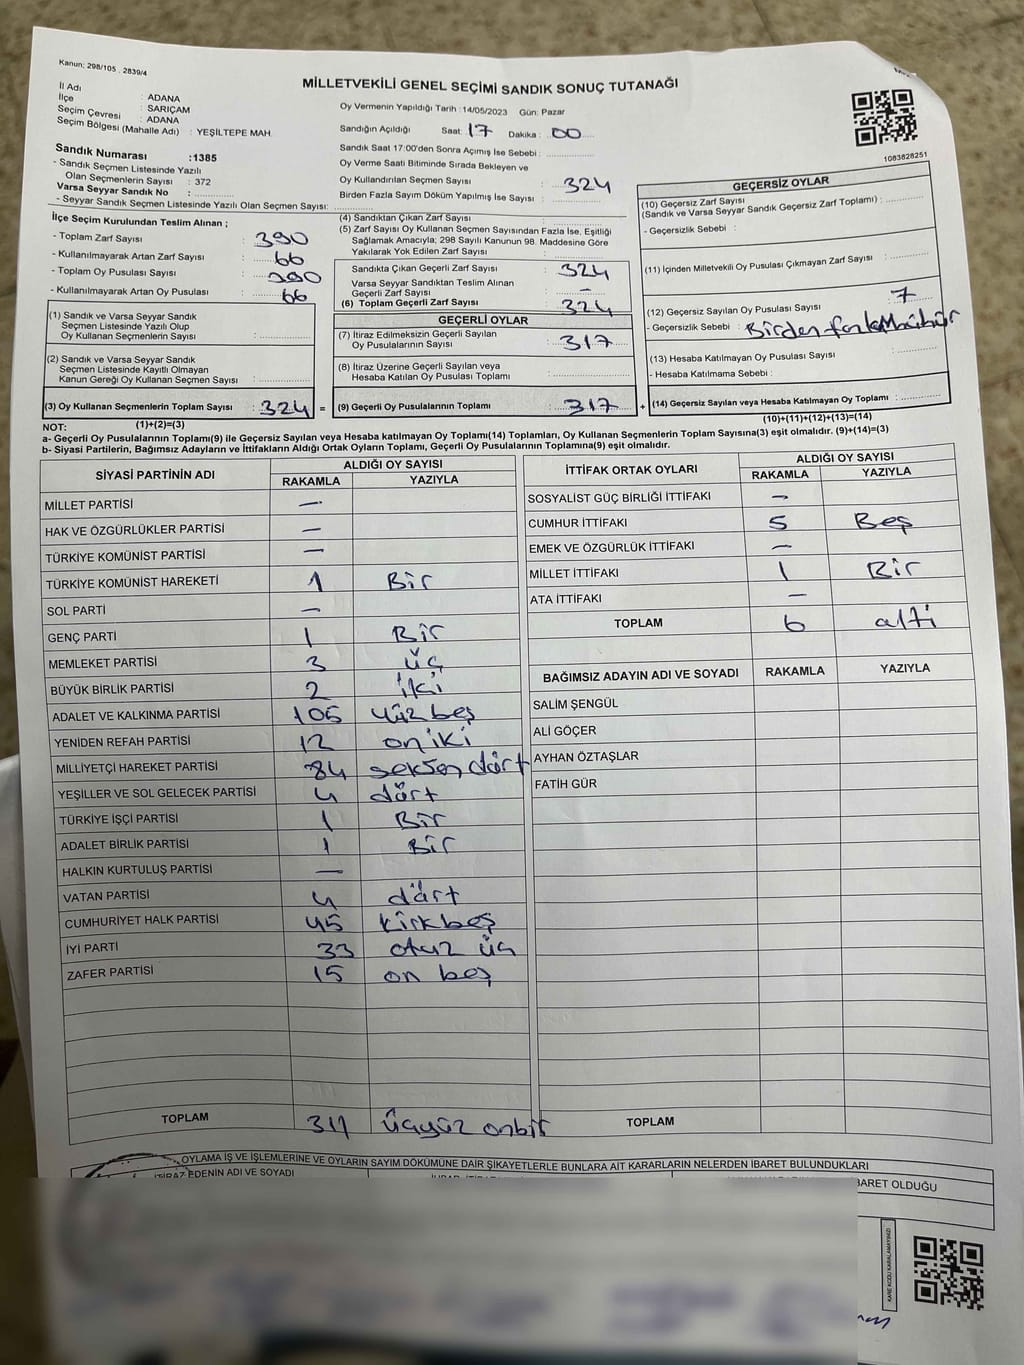 Kanun: 298/105 . 2839/4
MİLLETVEKİLİ GENEL SEÇİMİ SANDIK SONUÇ TUTANAĞI
İl Adı : ADANA
İlçe : SARIÇAM
Seçim Çevresi : ADANA
Seçim Bölgesi (Mahalle Adı) : YEŞİLTEPE MAH.
Sandık Numarası :1385
- Sandık Seçmen Listesinde Yazılı
Olan Seçmenlerin Sayısı : 372
Varsa Seyyar Sandık No :
- Seyyar Sandık Seçmen Listesinde Yazılı Olan Seçmen Sayısı:
Oy Vermenin Yapıldığı Tarih :14/05/2023 Gün: Pazar
Sandığın Açıldığı Saat: 17 Dakika : 00
Sandık Saat 17:00'den Sonra Açımış İse Sebebi :
Oy Verme Saati Bitiminde Sırada Bekleyen ve
Oy Kullandırılan Seçmen Sayısı : 324
Birden Fazla Sayım Döküm Yapılmış İse Sayısı :
1083828251
İlçe Seçim Kurulundan Teslim Alınan ;
- Toplam Zarf Sayısı : 390
- Kullanılmayarak Artan Zarf Sayısı : 66
- Toplam Oy Pusulası Sayısı : 390
- Kullanılmayarak Artan Oy Pusulası : 66
(1) Sandık ve Varsa Seyyar Sandık
Seçmen Listesinde Yazılı Olup
Oy Kullanan Seçmenlerin Sayısı :
(2) Sandık ve Varsa Seyyar Sandık
Seçmen Listesinde Kayıtlı Olmayan
Kanun Gereği Oy Kullanan Seçmen Sayısı :
(3) Oy Kullanan Seçmenlerin Toplam Sayısı : 324 =
(1)+(2)=(3)
(4) Sandıktan Çıkan Zarf Sayısı :
(5) Zarf Sayısı Oy Kullanan Seçmen Sayısından Fazla İse, Eşitliği
Sağlamak Amacıyla; 298 Sayılı Kanunun 98. Maddesine Göre
Yakılarak Yok Edilen Zarf Sayısı :
Sandıkta Çıkan Geçerli Zarf Sayısı : 324
Varsa Seyyar Sandıktan Teslim Alınan
Geçerli Zarf Sayısı : -
(6) Toplam Geçerli Zarf Sayısı : 324
GEÇERLİ OYLAR
(7) İtiraz Edilmeksizin Geçerli Sayılan
Oy Pusulalarının Sayısı : 317
(8) İtiraz Üzerine Geçerli Sayılan veya
Hesaba Katılan Oy Pusulası Toplamı :
(9) Geçerli Oy Pusulalarının Toplamı : 317 +
GEÇERSİZ OYLAR
(10) Geçersiz Zarf Sayısı
(Sandık ve Varsa Seyyar Sandık Geçersiz Zarf Toplamı) :
- Geçersizlik Sebebi :
(11) İçinden Milletvekili Oy Pusulası Çıkmayan Zarf Sayısı :
(12) Geçersiz Sayılan Oy Pusulası Sayısı : 7
- Geçersizlik Sebebi : Birden fazla Mühür
(13) Hesaba Katılmayan Oy Pusulası Sayısı :
- Hesaba Katılmama Sebebi :
(14) Geçersiz Sayılan veya Hesaba Katılmayan Oy Toplamı :
(10)+(11)+(12)+(13)=(14)
NOT:
a- Geçerli Oy Pusulalarının Toplamı(9) ile Geçersiz Sayılan veya Hesaba katılmayan Oy Toplamı(14) Toplamları, Oy Kullanan Seçmenlerin Toplam Sayısına(3) eşit olmalıdır. (9)+(14)=(3)
b- Siyasi Partilerin, Bağımsız Adayların ve İttifakların Aldığı Ortak Oyların Toplamı, Geçerli Oy Pusulalarının Toplamına(9) eşit olmalıdır.
SİYASİ PARTİNİN ADI ALDIĞI OY SAYISI
RAKAMLA YAZIYLA
MİLLET PARTİSİ —
HAK VE ÖZGÜRLÜKLER PARTİSİ —
TÜRKİYE KOMÜNİST PARTİSİ —
TÜRKİYE KOMÜNİST HAREKETİ 1 Bir
SOL PARTİ —
GENÇ PARTİ 1 Bir
MEMLEKET PARTİSİ 3 üç
BÜYÜK BİRLİK PARTİSİ 2 iki
ADALET VE KALKINMA PARTİSİ 105 yüz beş
YENİDEN REFAH PARTİSİ 12 on iki
MİLLİYETÇİ HAREKET PARTİSİ 84 seksen dört
YEŞİLLER VE SOL GELECEK PARTİSİ 4 dört
TÜRKİYE İŞÇİ PARTİSİ 1 Bir
ADALET BİRLİK PARTİSİ 1 Bir
HALKIN KURTULUŞ PARTİSİ —
VATAN PARTİSİ 4 dört
CUMHURİYET HALK PARTİSİ 45 kırk beş
İYİ PARTİ 33 otuz üç
ZAFER PARTİSİ 15 on beş
TOPLAM 311 üçyüz onbir
İTTİFAK ORTAK OYLARI ALDIĞI OY SAYISI
RAKAMLA YAZIYLA
SOSYALİST GÜÇ BİRLİĞİ İTTİFAKI —
CUMHUR İTTİFAKI 5 Beş
EMEK VE ÖZGÜRLÜK İTTİFAKI —
MİLLET İTTİFAKI 1 Bir
ATA İTTİFAKI —
TOPLAM 6 altı
BAĞIMSIZ ADAYIN ADI VE SOYADI RAKAMLA YAZIYLA
SALİM ŞENGÜL
ALİ GÖÇER
AYHAN ÖZTAŞLAR
FATİH GÜR
TOPLAM
OYLAMA İŞ VE İŞLEMLERİNE VE OYLARIN SAYIM DÖKÜMÜNE DAİR ŞİKAYETLERLE BUNLARA AİT KARARLARIN NELERDEN İBARET BULUNDUKLARI
İTİRAZ EDENİN ADI VE SOYADI
BARET OLDUĞU
KARE KODU KARALAMAYINIZ!